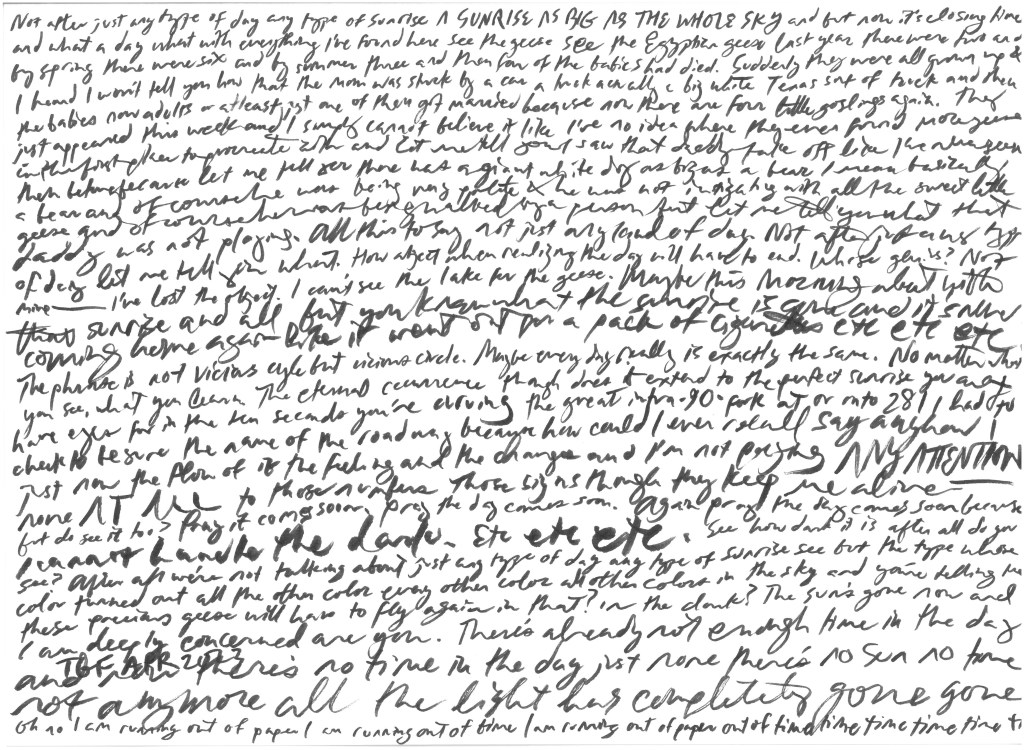 Not after just any type of day any type of sunrise A SUNRISE AS BIG AS THE WHOLE SKY and but now it's closing time
and what a day what with everything I've found here see the geese see the Egyptian geese last year there were two and
by spring there were six and by summer three and then four of the babies had died. Suddenly they were all grown up &
I heard I won't tell you how that the mom was struck by a car a truck actually a big white Texas sort of truck and then
the babies now adults or at least just one of them got married because now there are four little goslings again. They
just appeared this week and I simply cannot believe it like I've no idea where they even found more geese
in the first place to procreate with and let me tell you I saw that daddy take off like I've never seen
them before because let me tell you there was a giant white dog as big as a bear I mean basically
a bear and of course he was being very polite & he was not instigating with all the sweet little
geese and of course he was being walked by a person but let me tell you what that
daddy was not playing. All this to say not just any kind of day. Not after just any type
of day let me tell you what. How abject when realizing the day will have to end. Whose genius? Not
mine — I've lost the object. I can't see the lake for the geese. Maybe this morning about with
that sunrise and all but you know what the sunrise is gone and it's never
coming home again like it went out for a pack of cigarettes etc etc etc
The phrase is not vicious cycle but vicious circle. Maybe every day really is exactly the same. No matter what
you see, what you learn. The eternal recurrence though does it extend to the perfect sunrise you only
have eyes for in the ten seconds you're driving the great infra-90-fork at or onto 289 I had to
check to be sure the name of the roadway because how could I ever recall say anyhow I
just now the flow of it the feeling and the changes and I'm not paying ANY ATTENTION
none AT ALL to those numbers those signs though they keep me alive —
but do see it too? Pray it comes soon pray the day comes soon. Again pray the day comes soon because
I cannot handle the dark. Etc etc etc. See how dark it is after all do you
see? After all we're not talking about just any type of day any type of sunrise see but the type whose
color turned out all the other color every other color all other colors in the sky and you're telling me
these precious geese will have to fly again in that? in the dark? The sun's gone now and
I am deeply concerned are you. There's already not enough time in the day
and now there's no time in the day just none there's no sun no time
not anymore all the light has completely gone gone
oh no I am running out of paper I am running out of time I am running out of paper out of time time time time time